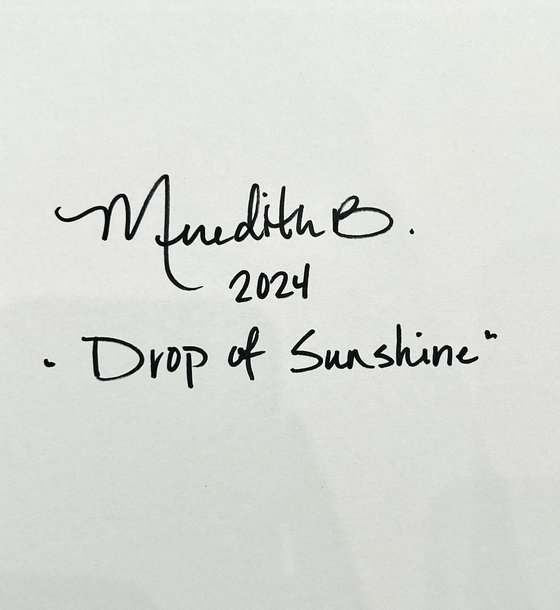 Meredith B.
2024
. Drop of Sunshine"